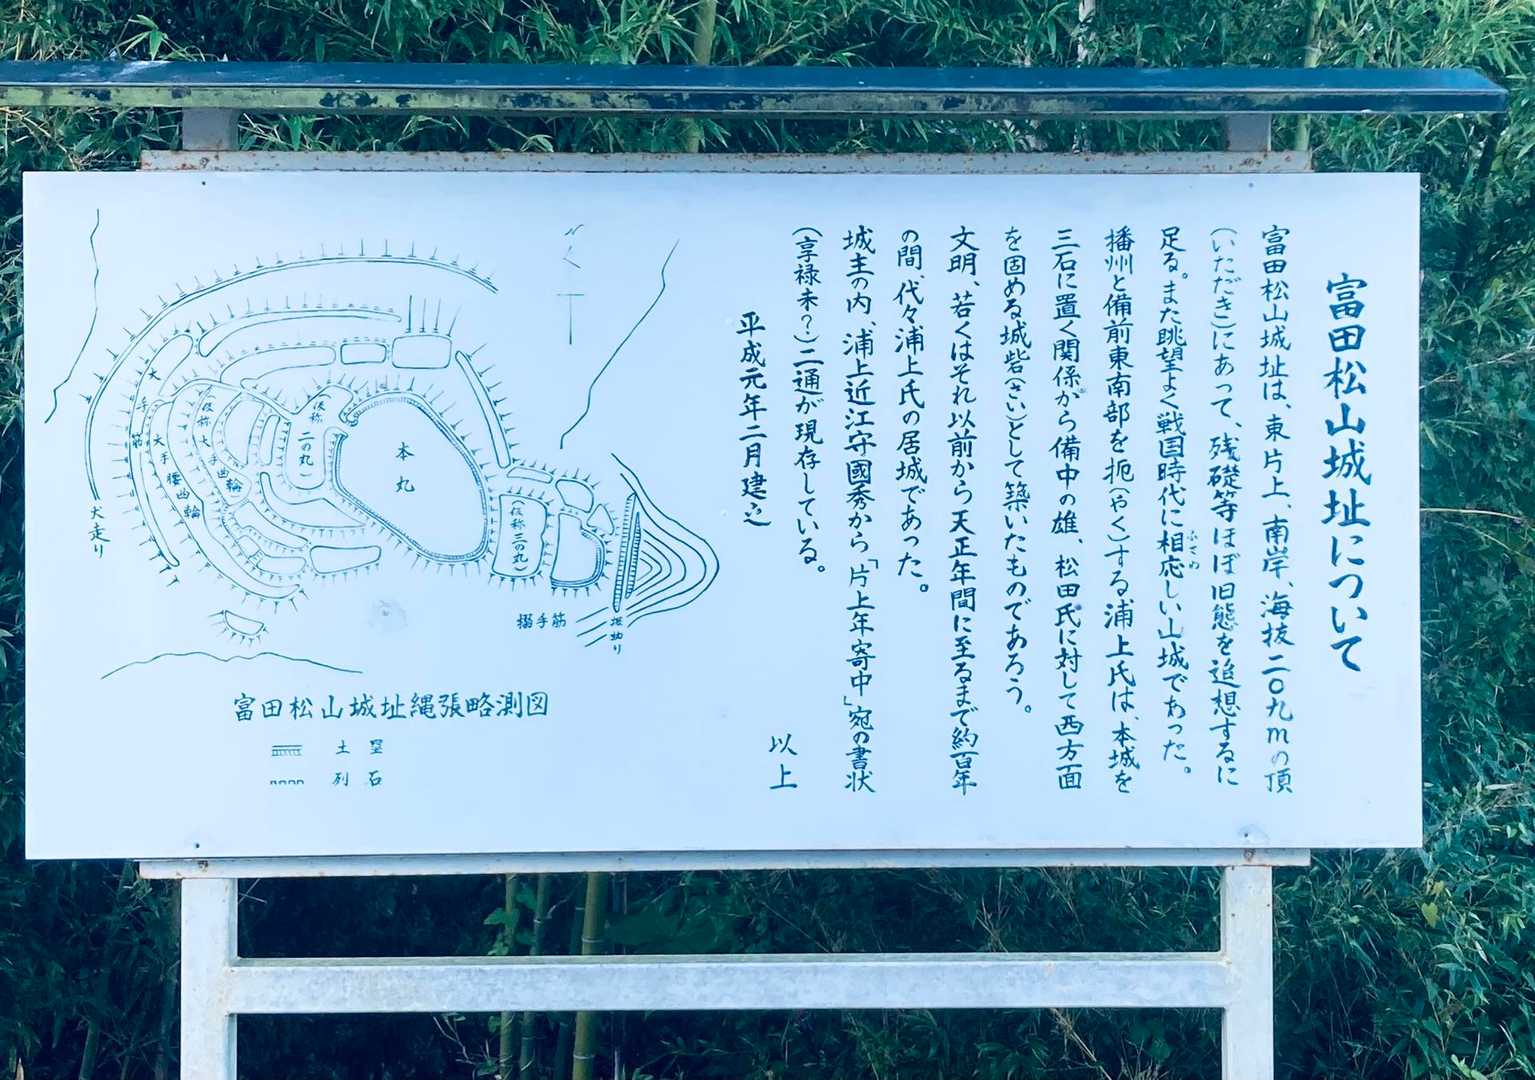 富田松山城址について
富田松山城址は、東片上、南岸、海抜二〇九mの頂
(いただき)にあって、残礎等ほぼ旧態を追想するに
足る。また眺望よく戦国時代に相応しい山城であった。
ふさわ
播州と備前東南部を扼(やく)する浦上氏は、本城を
三石に置く関係から備中の雄、松田氏に対して西方面
を固める城砦(さい)として築いたものであろう。
文明、若くはそれ以前から天正年間に至るまで約百年
の間、代々浦上氏の居城であった。
城主の内、浦上近江守國秀から「片上年寄中」宛の書状
(享禄末?)二通が現存している。
以上
平成元年二月建之
本丸
(仮称
二の丸)
(仮称三の丸)
(仮称大手曲輪
大手腰曲輪
大手筋
犬走り
搦手筋
堀切り
富田松山城址縄張略測図
土塁
列石